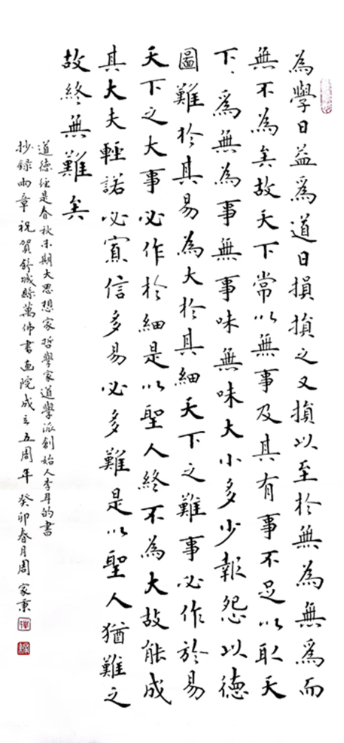 為學日益爲道日損損之又損以至於無為無爲而
無不為矣故天下常以無事及其有事不足以取天
下爲無為事無事味無味大小多少報怨以德
圖難於其易為大於其細天下之難事必作於易
天下之大事必作於細是以聖人終不為大故能成
其大夫輕諾必寡信多易必多難是以聖人猶難之
故終無難矣
道德经是春秋末期大思想家哲學家道學派創始人李耳的書
抄録兩章祝賀舒城縣萬佛書画院成立五周年癸卯春月周家東